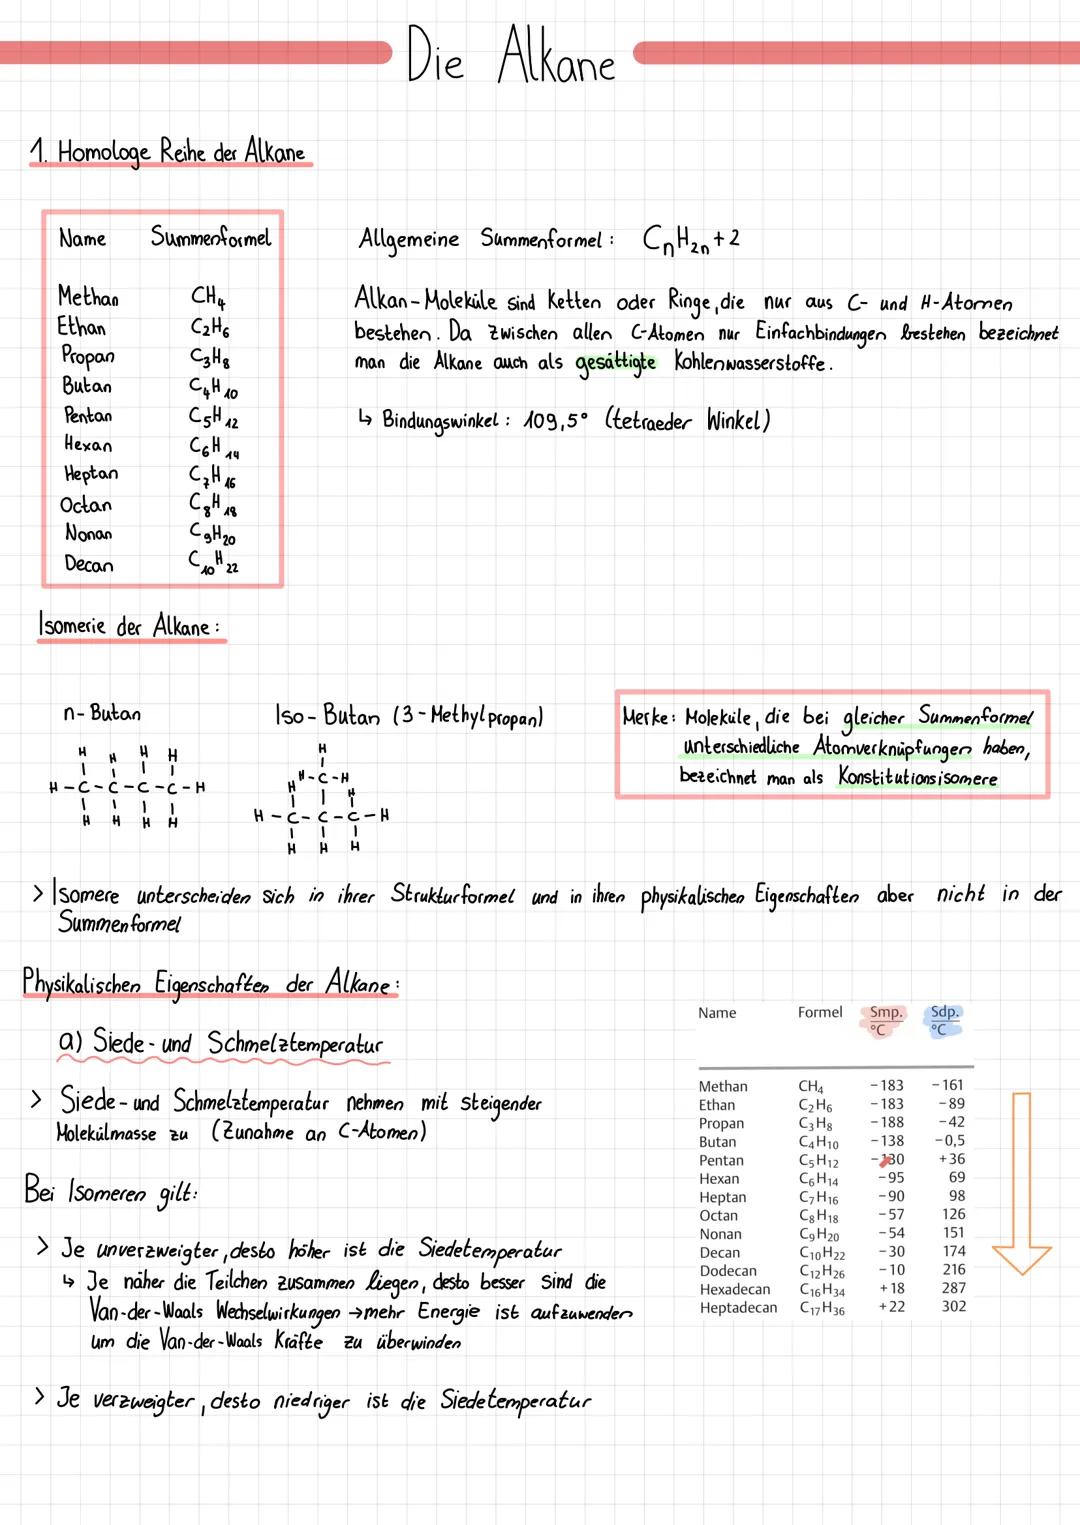 Die Alkane
1. Homologe Reihe der Alkane
Name Summenformel
Methan CH₄
Ethan C₂H₆
Propan C₃H₈
Butan C₄H₁₀
Pentan C₅H₁₂
Hexan C₆H₁₄
Heptan C₇H₁₆
Octan C₈H₁₈
Nonan C₉H₂₀
Decan C₁₀H₂₂
Allgemeine Summenformel: CₙH₂ₙ+2
Alkan-Moleküle sind Ketten oder Ringe, die nur aus C- und H-Atomen
bestehen. Da zwischen allen C-Atomen nur Einfachbindungen bestehen bezeichnet
man die Alkane auch als gesättigte Kohlenwasserstoffe.
↳ Bindungswinkel: 109,5° (tetraeder Winkel)
Isomerie der Alkane:
n-Butan
H H H H
H-C-C-C-C-H
H H H H
Iso-Butan (3-Methylpropan)
H
H-C-H
H H
H-C-C-C-H
H H H
Merke: Moleküle, die bei gleicher Summenformel
unterschiedliche Atomverknüpfungen haben,
bezeichnet man als Konstitutionsisomere
> Isomere unterscheiden sich in ihrer Strukturformel und in ihren physikalischen Eigenschaften aber nicht in der
Summenformel
Physikalischen Eigenschaften der Alkane:
a) Siede- und Schmelztemperatur
> Siede- und Schmelztemperatur nehmen mit steigender
Molekülmasse zu (Zunahme an C-Atomen)
Bei Isomeren gilt:
> Je unverzweigter, desto höher ist die Siedetemperatur
↳ Je näher die Teilchen zusammen liegen, desto besser sind die
Van-der-Waals Wechselwirkungen → mehr Energie ist aufzuwenden
um die Van-der-Waals Kräfte zu überwinden
> Je verzweigter, desto niedriger ist die Siedetemperatur
Name Formel Smp. Sdp.
°C °C
Methan CH₄ -183 -161
Ethan C₂H₆ -183 -89
Propan C₃H₈ -188 -42
Butan C₄H₁₀ -138 -0,5
Pentan C₅H₁₂ -130 +36
Hexan C₆H₁₄ -95 69
Heptan C₇H₁₆ -90 98
Octan C₈H₁₈ -57 126
Nonan C₉H₂₀ -54 151
Decan C₁₀H₂₂ -30 174
Dodecan C₁₂H₂₆ -10 216
Hexadecan C₁₆H₃₄ +18 287
Heptadecan C₁₇H₃₆ +22 302